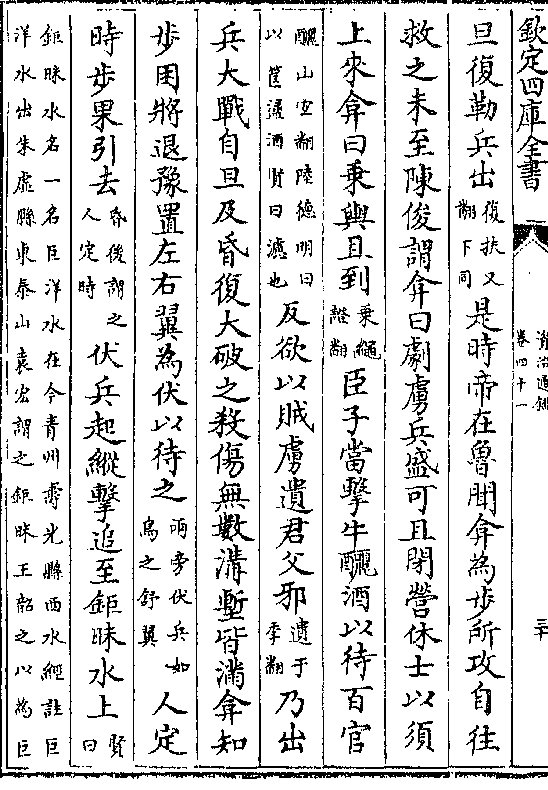 欽定四庫全書
資治通鑑
卷四十一
三十
旦復勒兵出復扶又翻下同是時帝在魯聞弇為步所攻自往
救之未至陳俊謂弇曰劇虜兵盛可且閉營休士以須
上來弇曰乗輿且到乗繩證翻臣子當擊牛釃酒以待百官
釃山宜翻陸德明曰以筐漉酒賢曰濾也反欲以賊虜遺君父邪遺于季翻乃出
兵大戰自旦及昏復大破之殺傷無數溝塹皆滿弇知
步困將退豫置左右翼為伏以待之兩旁伏兵如鳥之舒翼人定
時步果引去昏後謂之人定時伏兵起縱擊追至鉅昧水上賢曰
鉅昧水名一名巨洋水在今青州壽光縣西水經註巨洋水出朱虛縣東泰山袁宏謂之鉅昧王韶之以為巨